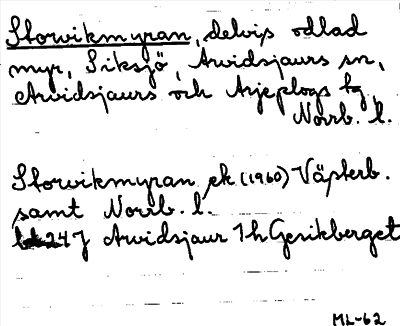 Storvikmyran, delvis odlad
myr, Siksjö, Arvidsjaurs sn,
Arvidsjaurs och Arjeplogs tg
Norrb. l.
Storvikmyran ek (1960) Västerb.
samt Norrb. l.
247 Arvidsjaur 1h Gerikberget
ML-62